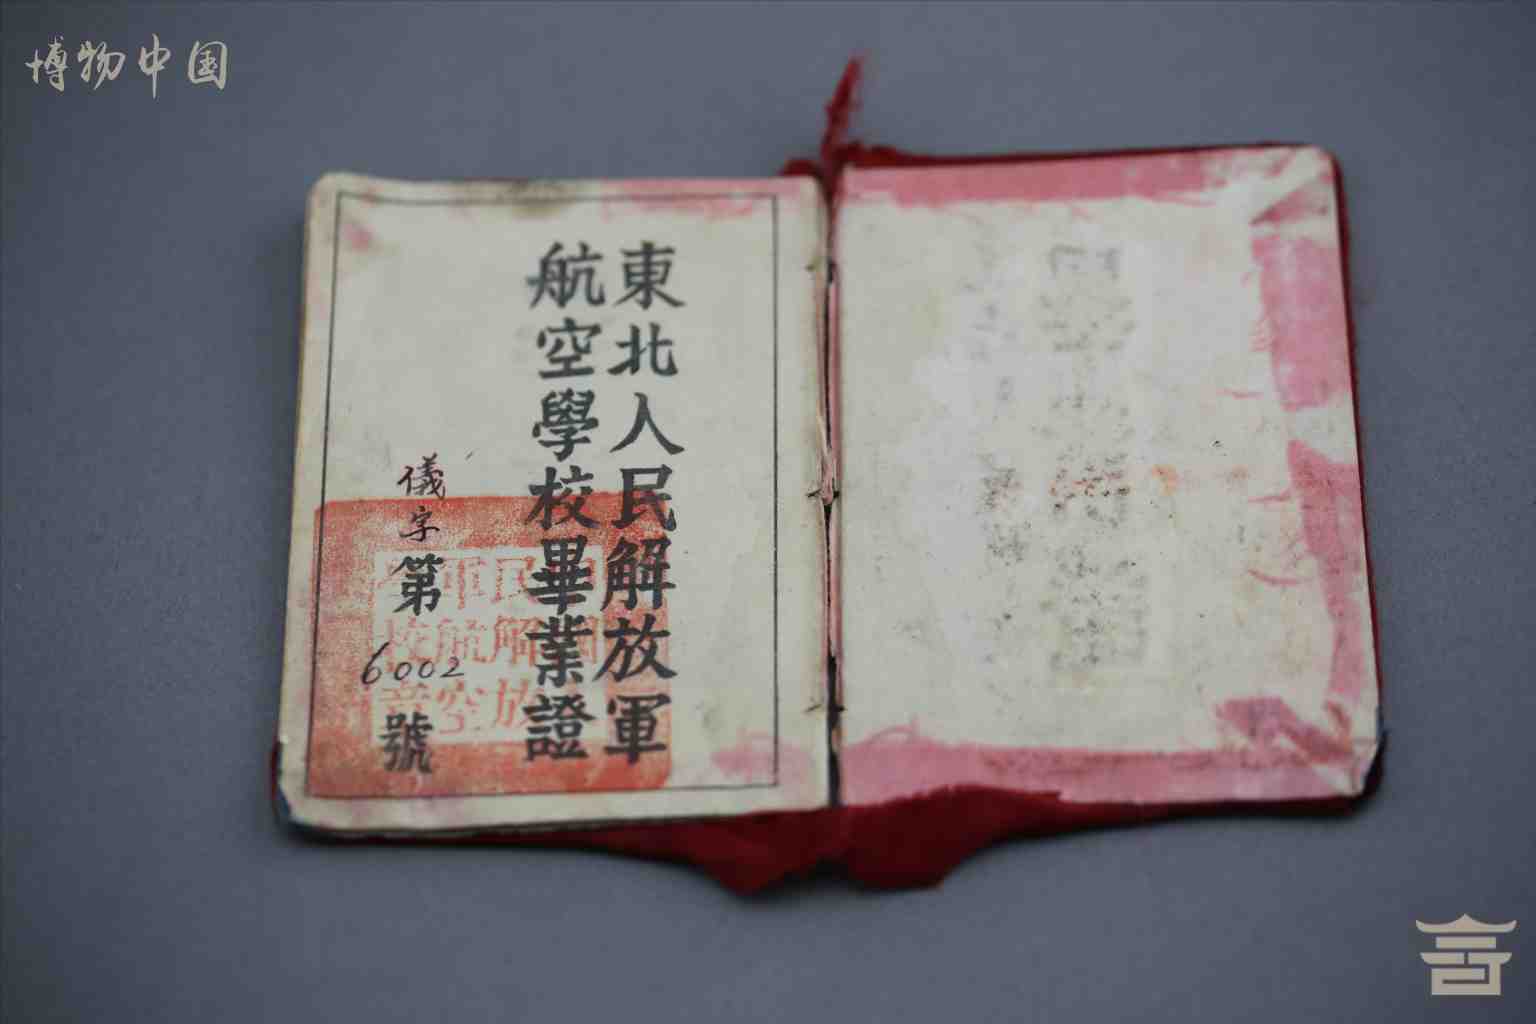 博物中国
東北人民解放軍
航空學校畢業證
儀字第6002號